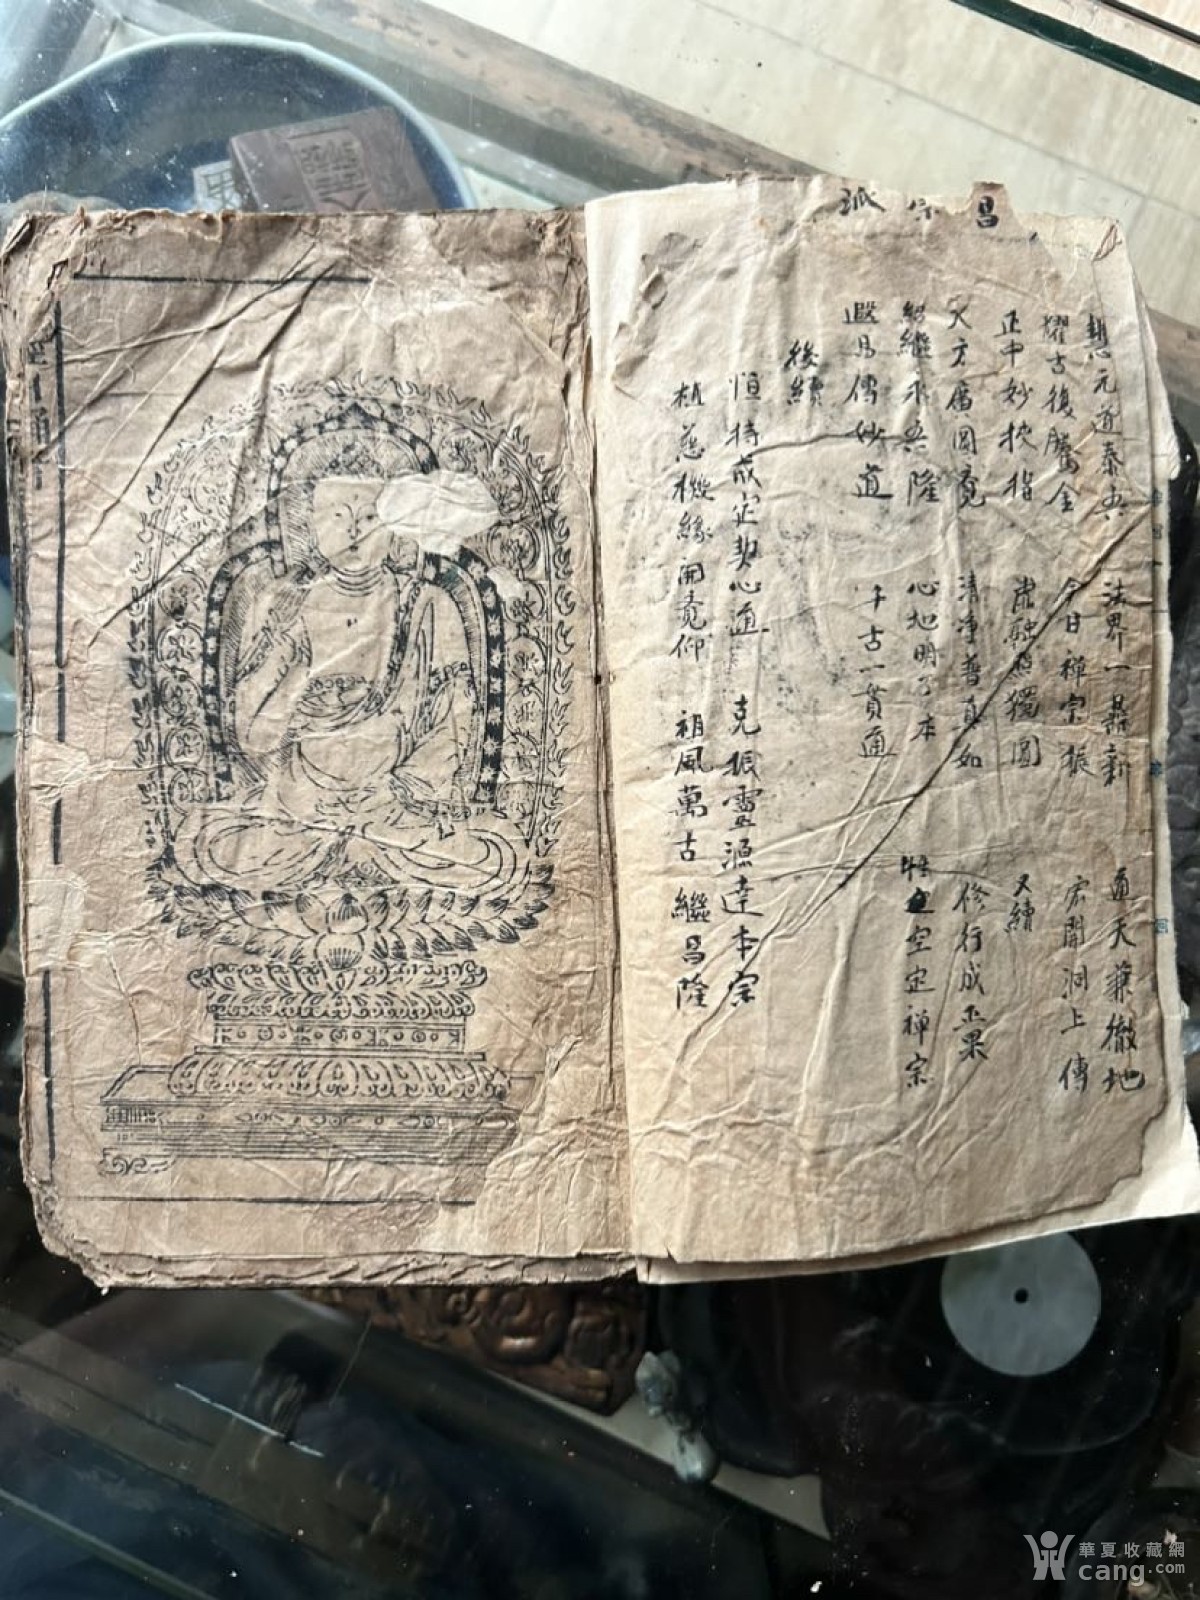 昌宗泒
慧元道泰興 法界一鼎新 通天兼徹地
耀古復騰 今日禪宗振 宏開洞上傳
正中妙挾指 虛融照獨圓 又續
大方廣圓覺 清淨普真如 修行成正果
紹繼永興隆 心地明了本 性空定禪宗
遐昌傳妙道 千古一貫通
後續
恒持戒定契心通 克振靈源達本宗
植慈機緣開覺仰 祖風萬古繼昌隆
華夏收藏網
cang.com